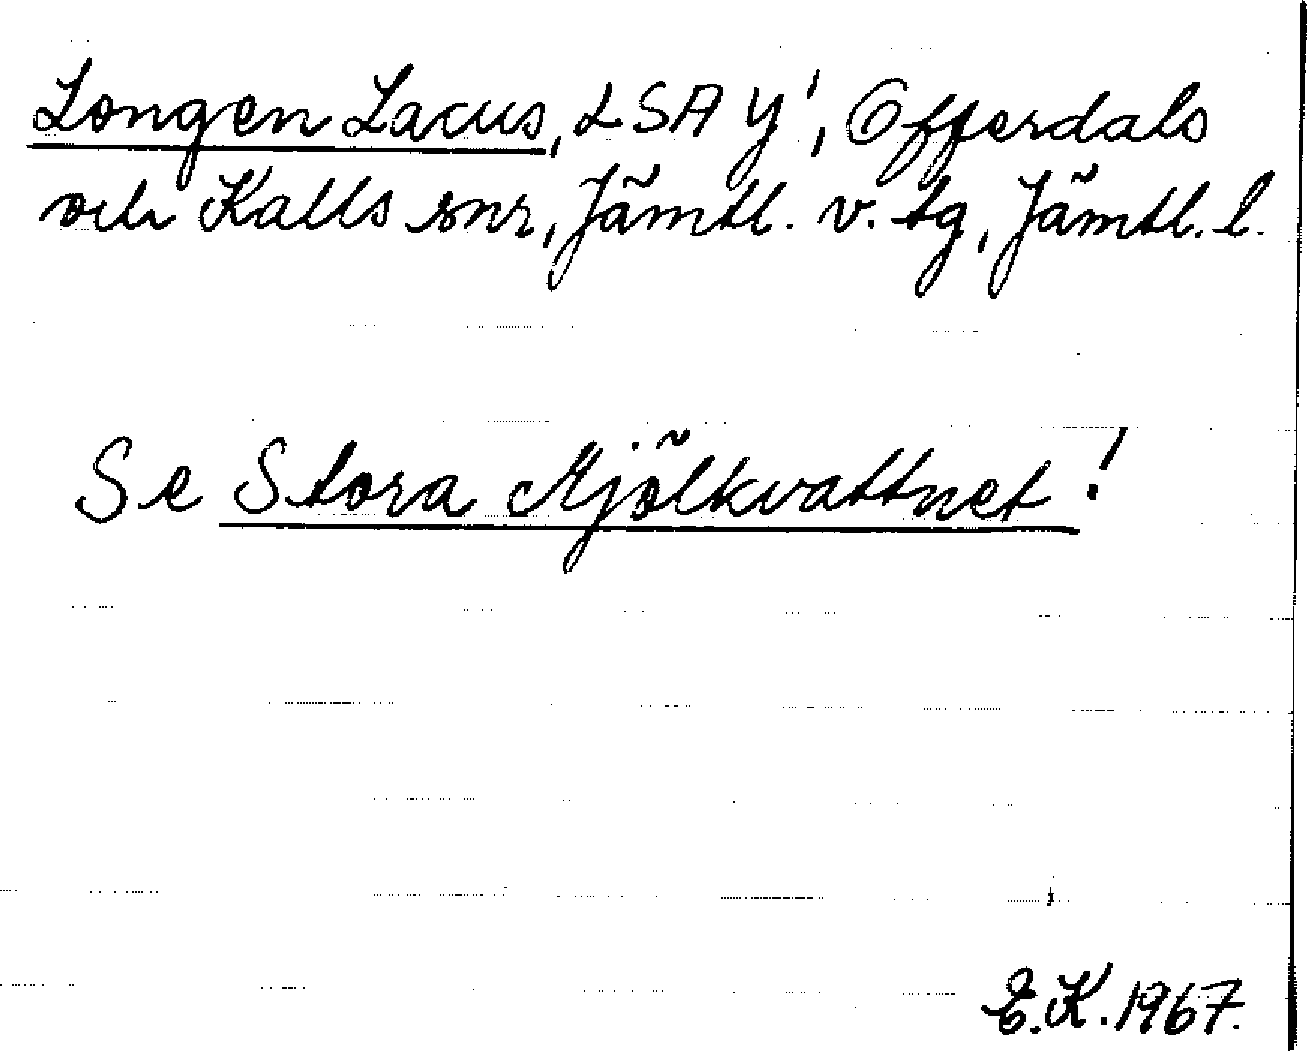 Longen Lacus, LSA Y', Offerdals
och Kalls snr, Jämtl. v. tg, Jämtl. l.
Se Stora Mjölkvattnet!
E.K. 1967.